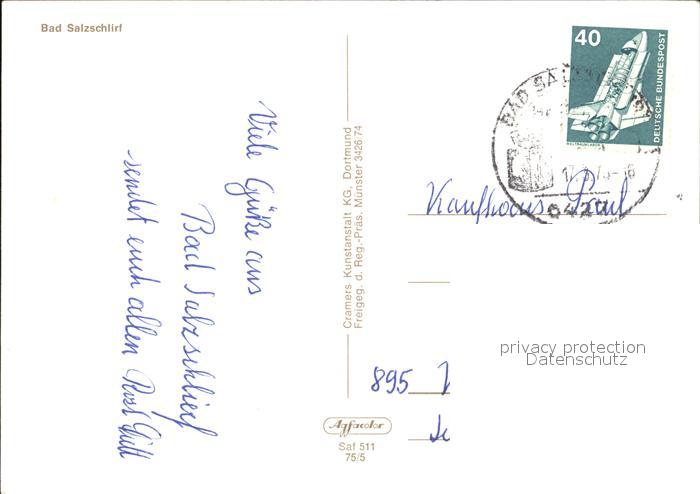 Bad Salzschlirf
Viele Grüße aus
Bad Salzschlirf
sendet euch allen
Cramers Kunstanstalt KG, Dortmund
Freigeg. d. Reg.-Präs. Münster 3426/74
Agfacolor
Saf 511
75/5
40
DEUTSCHE BUNDESPOST
WELTRAUMLABOR
BAD SALZ
6427
Kaufhaus Paul
privacy protection
Datenschutz
895